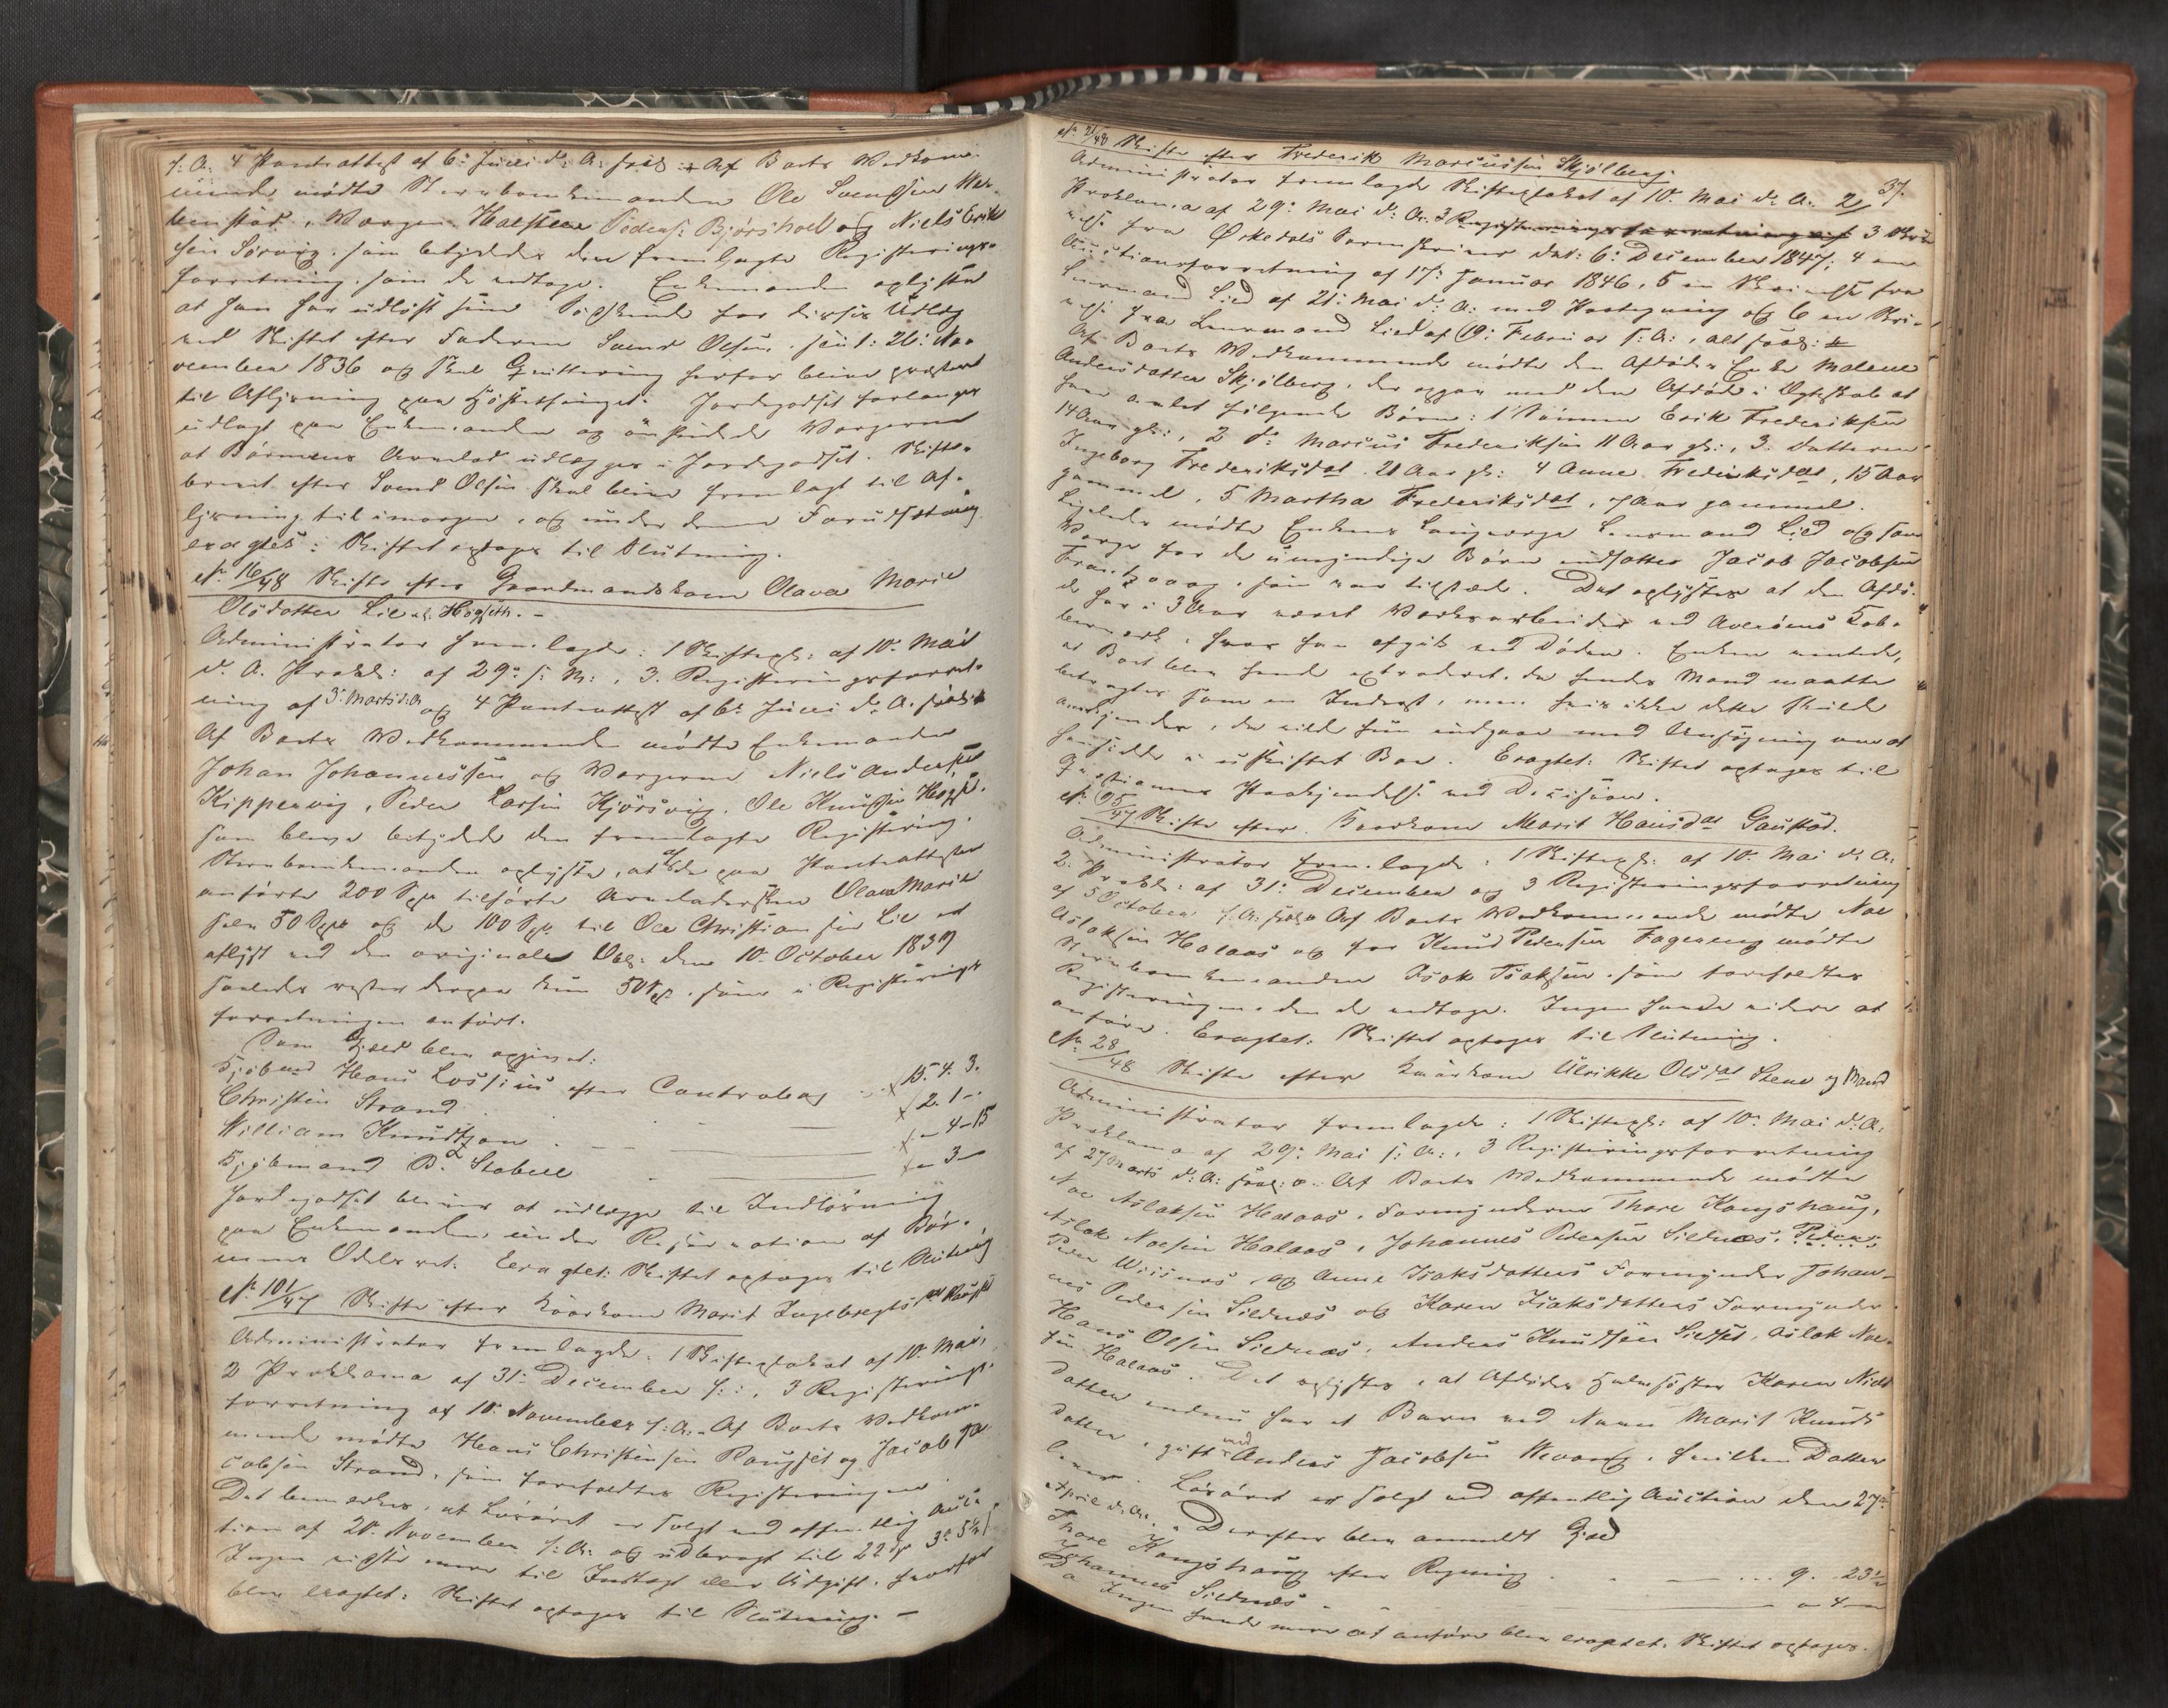 f: A: 4 Panteattest af 6te Juni d: A: fræl: Af Boets Vedkom-
mende mødte Stervboenkemanden Ole Svendsen Wer-
lenstad, Wærgen Halsten Peders: Bjørshoel og Niels Erik
sen Sørvig, som betydede den fremlagte Registerings-
forretning, som de vedtoge. Enkemanden oplyste
at han har udløst sine Søskende for disses Udlæg
ved Skiftet efter Faderen Svend Olsen, slut: 26: No-
vember 1836 og skal Qvittering herfor blive præsteret
til Aflysning paa Høstethinget. Jordegodset forlanges
udlagt paa Enkemanden og ønskede Wærgerne
at Børnenes Arvelod udlægges i Jordegodset. Skifte-
brevet efter Svend Olsen skal blive fremlagt til Af-
lysning til imorgen, og under denne Forudsætning
eragtes: Skiftet optages til Slutning.
No 16/48 Skifte efter Gaardmandskone Olava Marie
Olsdatter Lie el: Høgseth. -
Administrator fremlagde: 1 Skiftepl: af 10de Mai
d: A. Prokl: af 29: s: M:, 3. Registeringsforret-
ning af 3: Marts d: A og 4 Panteattest af 6te Juni d: A. fræl:
Af Boets Vedkommende mødte Enkemanden
Johan Johannessen og Wærgerne Niels Andersen
Kippervig, Peder Larsen Kjørsvig, Ole Knudsen Høgset.
som bleve betydede den fremlagte Registering.
Stervboenkemanden oplyste, at af de paa Panteattesten
anførte 200 Spd tilhørte Arveladersken Olava Marie
selv 50 Spd og de 100 Spd til Ole Christiansen Lie er
aflyst ved den originale Obl: den 10. October 1837
saaledes rester derpaa kun 50 Spd. som i Registerings
forretningen anført.
Som Gjeld blev opgivet:
Kjøbmd Hans Lossius efter Contrabog - x 15. 4. 3.
Christen Strand x 2. 1 -.
William Knudtzon . - - x - 4 - 15
Kjøbmand B. Stabell x - 3 -
Jordegodset bliver at udlægge til Indløsning
paa Enkemanden under Reservation af Bør-
nenes Odelsret. Eeragtet: Skiftet optages til Slutning
No 101/47 Skifte efter Kaarkone Marit Ingebregtsdat Raugset
Administrator fremlagde: 1 Skifteplakat af 10. Mai,
2 Proklama af 31: December f: :, 3 Registerings-
forretning af 10: November f: A. - Af Boets Vedkom-
mende mødte Hans Christensen Raugset og Jacob Ja-
cobsen Strand, som foreholdtes Registeringen
Det bemærkes, at Løsøret er solgt ved offentlig Auk-
tion af 20. November f: A: og udbragt til 22 Sp 3 5½ s
Ingen vidste mere til Indtægt eller Udgift, hvorfor
blev eragtet: Skiftet optages til Slutning. -
37.
No 21/48 Skifte efter Frederik Marcussen Skjølberg.
Administrator fremlagde Skifteplakat af 10. Mai d: A: 2/
Proklama af 29: Mai d: A: 3 Registreringsforretning af 3 Skri-
velse fra Ørkedals Sorenskriver dat: 6: December 1847; 4 en
Auctionsforretning af 17: Januar 1846, 5 en Skrivelse fra
Lensmand Lied af 21: Mai d: A: med Paategning og 6 en Skri-
velse fra Lensmand Lied af 19: Februar f: A:, alt fræl:
Af Boets Vedkommende mødte den Afdødes Enke Malene
Andersdatter Skjølberg, der opgav med den Afdøde i Ægteskab at
have avlet følgende Børn: 1 Sønnen Erik Frederiksen
14 Aar gl:, 2 do Marcus Frederiksen 11 Aar gl:, 3. Datteren
Ingeborg Frederiksdat. 21 Aar gl: 4 Anne Frederiksdat, 15 Aar
gammel, 5 Martha Frederiksdat, 7 Aar gammel.
Ligeledes mødte Enkens Laugværge Lensmand Lied og som
Værge for de umyndige Børn indsattes Jacob Jacobsen
Fraashaug, som var tilstede. Det oplystes at den Afdø-
de har i 3 Aar været Værksarbeider ved Aaverøens Kob-
berværk, hvor han afgik ved Døden. Enken meente,
at Boet blev hende extraderet, da hendes Mand maatte
betragtes som en Inderst, men hvis ikke dette skulde
antagendes, da vilde hun indgaae med Ansøgning om at
hensidde i uskiftet Boe. Eragtet: Skiftet optages til
Qvæstionens Paakjendelse ved Decision.
No 95/47 Skifte efter Kaarkone Marit Hansdat Gaustad.
Administrator fremlagde: 1 Skiftepl: af 10. Mai d: A:
2. Prokl: af 31: December og 3 Registeringsforretning
af 5 October f: A: fræl: Af Boets Vedkommende mødte Noe
Aslaksen Halaas og for Knud Pedersen Fageræng mødte
Stervboenkemanden Isak Isaksen, som foreholdtes
Registeringen den de vedtoge. Ingen havde videre at
anføre. Eragtet: Skiftet optages til Slutning.
No 28/48 Skifte efter Kaarkone Ulrikke Olsdat Stene og Mand
Administrator fremlagde: 1 Skiftepl: af 10: Mai d: A:
Proklama af 29: Mai s: A:, 3 Registeringsforretning
af 27 Marts d: A: fræl: - Af Boets Vedkommende mødte
Noe Aslaksen Halaas, Formynderne Thore Kongshaug,
Aslak Noesen Halaas, Johannes Pedersen Sildnæs, Peder
Peder Wiisnes, og Anne Isaksdatters Formynder Johan-
nes Pedersen Sildnæs og Karen Isaksdatters Formynder
Hans Olsen Sildnæs, Anders Knudsen Sildset, Aslak Noe-
sen Halaas. Det oplystes, at Afdødes Halvsøster Karen Niels
datter endnu har et Barn ved Navn Marit Knuds
datter, gift med Anders Jacobsen Wevang, hvilken Datter
lever. Løsøret er solgt ved offentlig Auction den 27de
April d: A:. - Derefter blev anmeldt Gjeld
Thore Kongshaug efter Regning . . - ... 9. 23½
Johannes Sildnæs - - - 4 -
Ingen havde mere at anføre blev eragtet. Skiftet optages.